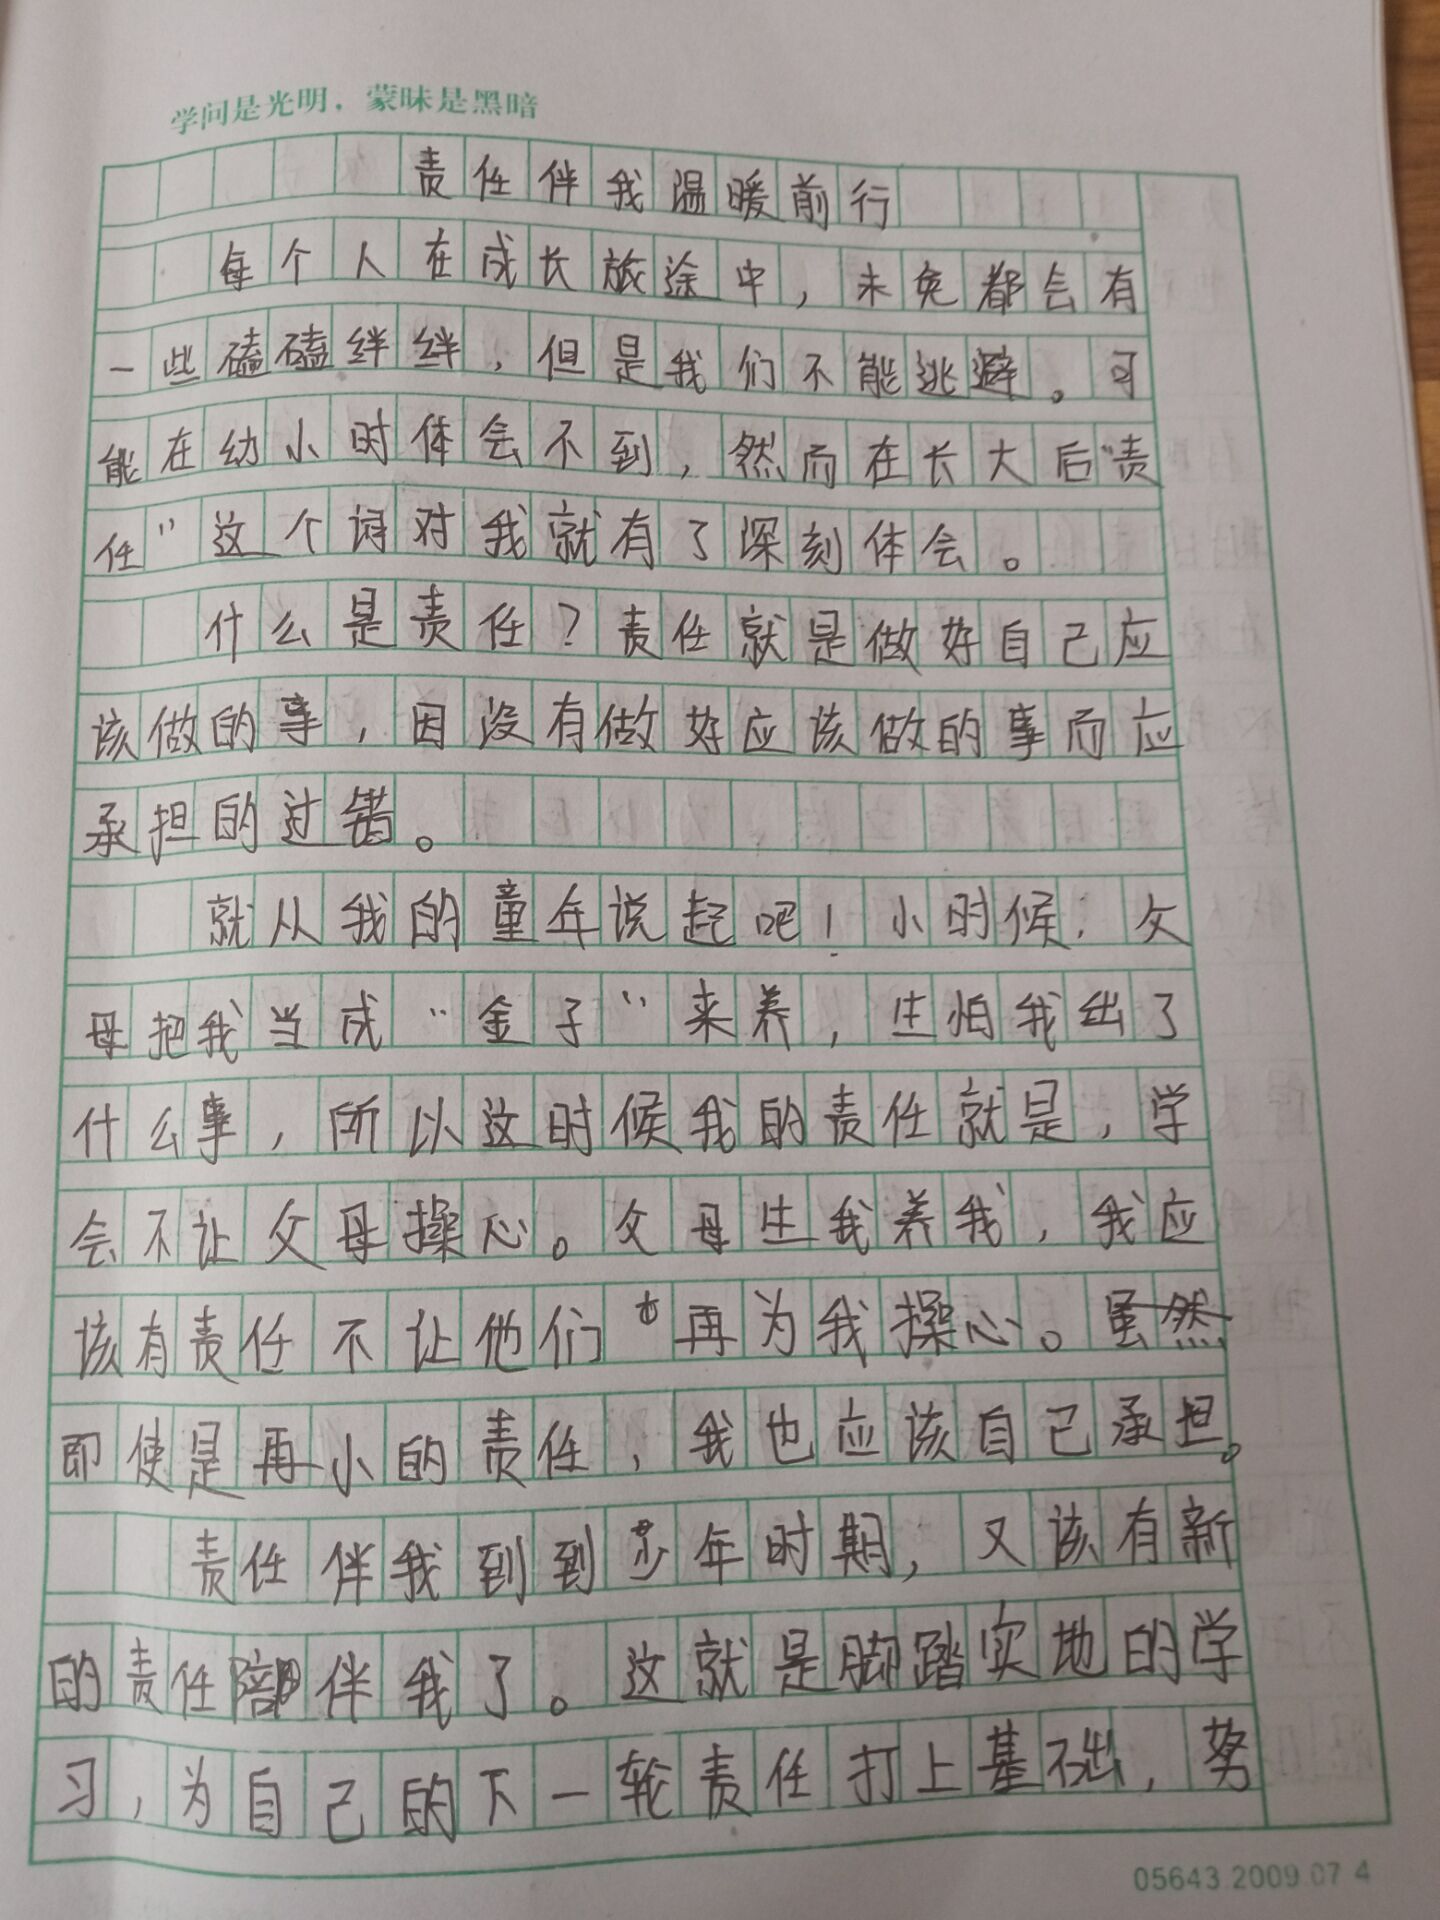 学问是光明，蒙昧是黑暗
责任伴我温暖前行
每个人在成长旅途中，未免都会有
一些磕磕绊绊，但是我们不能逃避。可
能在幼小时体会不到，然而在长大后“责
任”这个词对我就有了深刻体会。
什么是责任？责任就是做好自己应
该做的事，因没有做好应该做的事而应
承担的过错。
就从我的童年说起吧！小时候，父
母把我当成“金子”来养，生怕我出了
什么事，所以这时候我的责任就是，学
会不让父母操心。父母生我养我，我应
该有责任不让他们再为我操心。虽然
即使是再小的责任，我也应该自己承担。
责任伴我到到少年时期，又该有新
的责任陪伴我了。这就是脚踏实地的学
习，为自己的下一轮责任打上基础，努
05643.2009.07 4